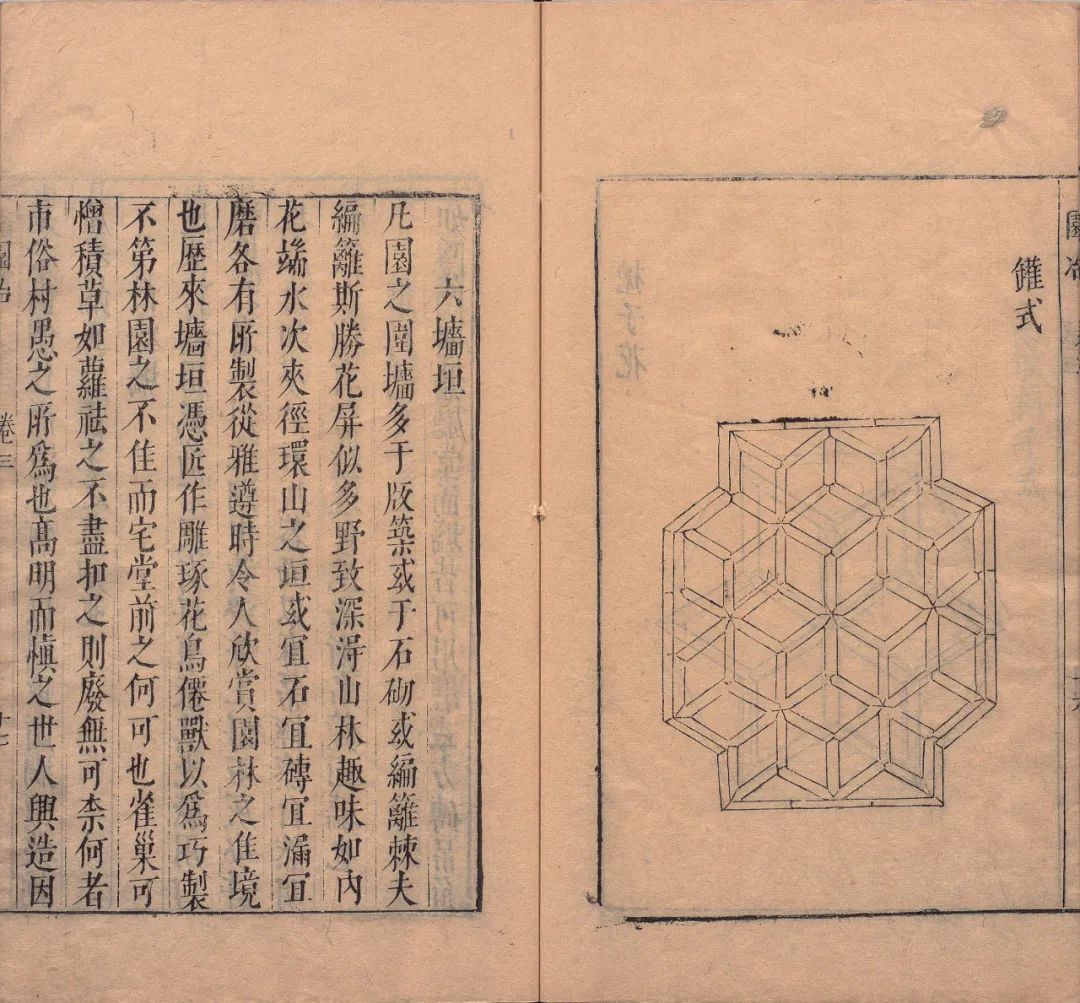 園冶
鑵式
六墻垣
凡園之圍墻多于版築或于石砌或編籬棘夫
編籬斯勝花屏似多野致深淂山林趣味如内
花端水次夾徑環山之垣或宜石宜磚宜漏宜
磨各有所製從雅遵時令人欣賞園林之佳境
也歷來墻垣憑匠作雕琢花鳥僊獸以爲巧製
不第林園之不佳而宅堂前之何可也雀巢可
憎積草如蘿祛之不盡扣之則廢無可柰何者
市俗村愚之所爲也髙明而愼之世人興造因
園冶
卷三
十七